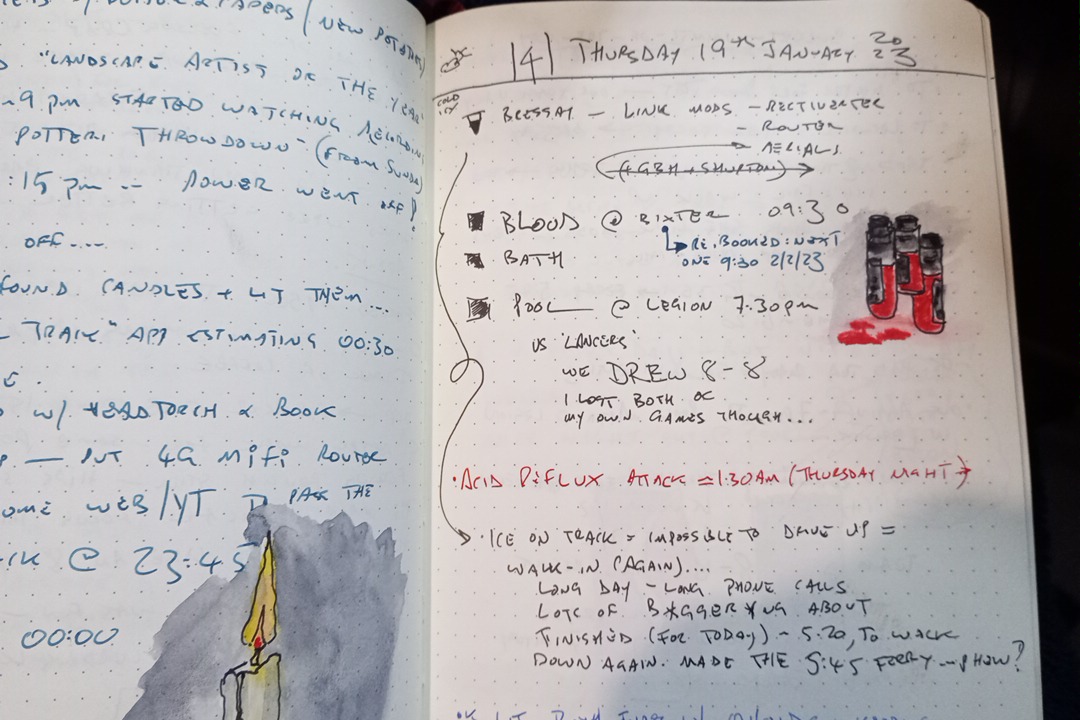 PAPERS / NEW POTATOES)
"LANDSCAPE ARTIST OF THE YEAR"
9 pm STARTED WATCHING RECORDING
POTTERY THROWDOWN" (FROM SUNDAY)
:15 pm -- POWER WENT OFF!
OFF....
FOUND CANDLES + LIT THEM...
TRACK" APP ESTIMATING 00:30
W/ HEADTORCH & BOOK
— PUT 4G MiFi ROUTER
WEB/YT PASS THE
@ 23:45
00:00
141 THURSDAY 19TH JANUARY 2023
COLD ICY
BRESSAY — LINK MODS — RECTIVERTER
— ROUTER
— AERIALS
(4GBH + SHURTON)
BLOOD @ BIXTER 09:30
RE.BOOKED: NEXT
ONE 9:30 2/2/23
BATH
POOL — @ LEGION 7.30pm
VS 'LANCERS'
WE DREW 8-8
I LOST BOTH OF
MY OWN GAMES THOUGH...
· ACID REFLUX ATTACK ≈1:30AM (THURSDAY NIGHT)
· ICE ON TRACK = IMPOSSIBLE TO DRIVE UP =
WALK-IN (AGAIN)....
LONG DAY - LONG PHONE CALLS
LOTS OF B*GGER*NG ABOUT
FINISHED (FOR TODAY) ~ 5:20, TO WALK
DOWN AGAIN. MADE THE 5:45 FERRY —PHOW?